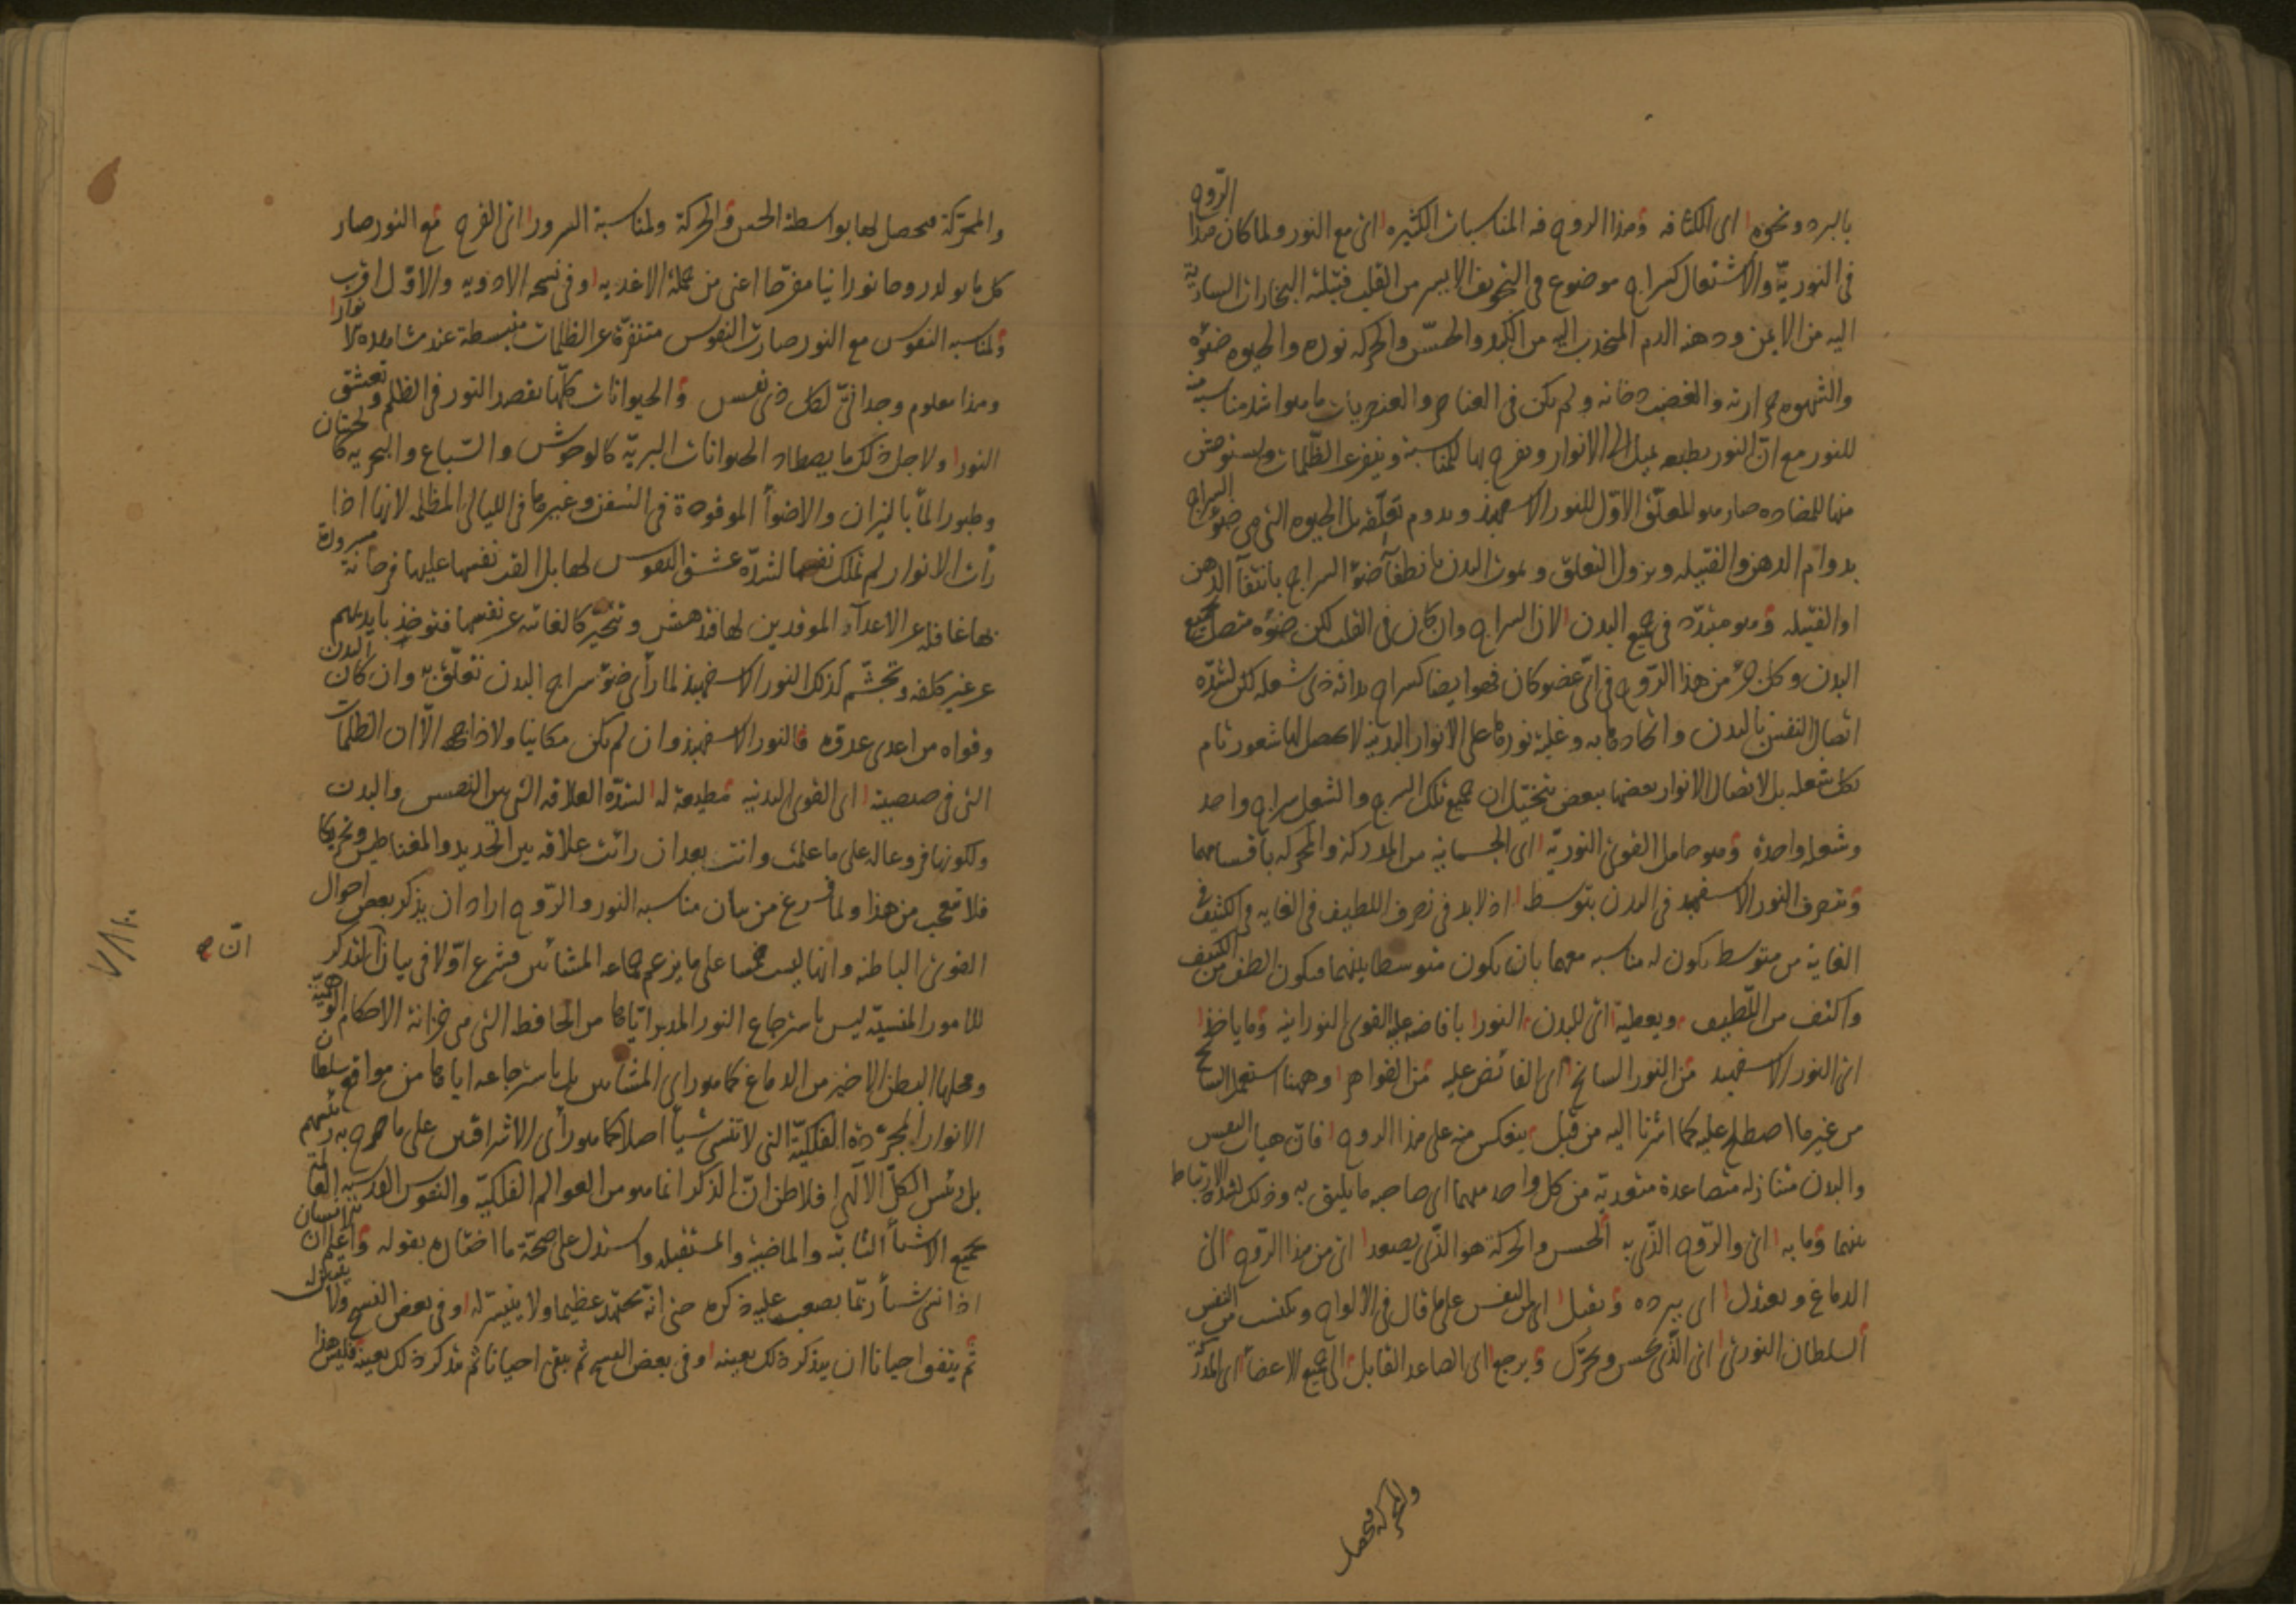 بالبرد ونحوه اى الكثافه وهذا الروح فيه المناسبات الكثيره اى مع النور ولما كان هذا الروح
فى النوريّة والاشتعال كسراج موضوع فى التجويف الايسر من القلب فتيلته البخارات السارية
اليه من الايمن ودهنه الدم المنجذب اليه من الكبد والحسّ والحركه نوره والحيوه ضوئه
والشهوه حرارته والغضب دخانه ولم يكن فى العناصر والعنصريات ما هو اشد مناسبة منه
للنور مع انّ النور بطبعه يميل الى الانوار ويفرح بها للمناسبة وينفر عن الظلمات ويستوحش
منها للمضاده صار هو المتعلّق الاوّل للنور الاسفهبذ ويدوم تعلّقه بل الحيوه التى هى ضوء السراج
بدوام الدهن والفتيله ويزول التعلق ويموت البدن بانطفآ ضوء السراج بانتفآ الدهن
او الفتيله وهو متبدّد فى جميع البدن الا ان السراج وان كان فى القلب لكن ضوئه متصل بجميع
البدن وكل جزء من هذا الرّوح فى اىّ عضو كان فهو ايضا كسراج براسه ذى شعله لكن لشدّه
اتصال النفس بالبدن واتحادها به وغلبة نورها على الانوار البدنيّة لا يحصل لها شعور تام
بكل شعله بل لاتصال الانوار بعضها ببعض يتخيّل ان جميع تلك السرج والشعل سراج واحد
وشعله واحدة وهو حامل القوى النوريّة اى الجسمانيه من المدركة والمحركه باقسامها
ويتصرف النور الاسفهبد فى البدن بتوسطه اذ لا بد فى تصرف اللطيف فى الغايه فى الكثيف فى
الغاية من متوسط يكون له مناسبه معهما بان يكون متوسطا بينهما فيكون الطف من الكثيف
واكثف من اللّطيف ويعطيه اى للبدن النور بافاضه عليه القوى النورانيه وما ياخذ
اى النور الاسفهبد من النور السانح اى الفائض عليه من القواهر وههنا استعمل السانح
من غير ما اصطلح عليه كما اشرنا اليه من قبل ينعكس منه على هذا الروح فانّ هيات النفس
والبدن متنازله متصاعدة متعديّة من كل واحد منهما الى صاحبه ما يليق به وذلك لشدّة الارتباط
بينهما وما به اى والرّوح الذّى به الحس والحركة هو الذّى يصعد اى من هذا الرّوح الى
الدماغ ويعتدل اى ببرده ويقبل اى من النفس على ما قال فى الالواح ويكتسب من النفس
السلطان النورىّ اى الذّى يحس ويحرّك ويرجع اى الصاعد القابل الى جميع الاعضآ اى المدركة
والمحركه فيحصل
والمحرّكة فيحصل لها بواسطة الحس والحركة ولمناسبة السرور اى الفرح مع النور صار
كل ما يولد روحا نورانيا مفرّحا اعنى من جملة الاغذيه وفى نسخه الادويه والاوّل اقرب
ولمناسبه النفوس مع النور صارت النفوس متنفّرة عن الظلمات منبسطة عند مشاهدة الانوار
وهذا معلوم وجدانىّ لكل ذى نفس والحيوانات كلّها تقصد النور فى الظلم وتعشق
النور ولاجل ذلك ما يصطاد الحيوانات البريّة كالوحوش والسّباع والبحريه كالحيتان
وطيور المآ بالنيران والاضوآ الموقودة فى السّفن وغيرها فى الليالى المظلمه لانها اذا
رأت الانوار لم تملك نفسها لشدّه عشق النفوس لها بل القت نفسها عليها فرحانة مسرورة
بها غافله عن الاعدآء الموقدين لها فتدهش وتتحيّر كالغائبه عن نفسها فتوخذ بايديهم
عن غير كلفه وتجشّم كذلك النور الاسفهبذ لما رأى ضوء سراج البدن تعلّق به وان كان البدن
وقواه من اعدى عدوّه فالنور الاسفهبذ وان لم يكن مكانيا ولا ذا جهه الّا ان الظلمات
التى فى صيصيته اى القوى البدنيه مطيعة له لشدّه العلاقه التى بين النفس والبدن
ولكونها فروعا له على ما علمت وانت بعد ان رائت علاقه بين الحديد والمغناطيس وتحريكا
فلا تتعجب من هذا ولما فرغ من بيان مناسبه النور والرّوح اراد ان يذكر بعض احوال
القوى الباطنه وانها ليست خمسا على ما يزعم جماعه المشائين فشرع اوّلا فى بيان انّ التذكر
انّ صح
للامور المنسيّه ليس باسترجاع النور المدبر ايّاها من الحافظة التى هى خزانة الاحكام الوهميّة
ومحلها البطن الاخير من الدماغ كما هو راى المشائين بل باسترجاعه اياها من مواقع سلطان
الانوار المجرّدة الفلكيّة التى لا تنسى شيأ اصلا كما هو رأى الاشراقيين على ما صرح به رئيسهم
بل رئيس الكلّ الآلهى افلاطن انّ الذكر انما هو من العوالم الفلكيّه والنفوس القدسيه العالمة
بجميع الاشيآ الثابته والماضية والمستقبله واستدل على صحّة ما اختاره بقوله واعلم ان الانسان
اذا نسى شيأ ربّما يصعب عليه ذكره حتى انّه يجتهد عظيما ولا يتيسّر له وفى بعض النسخ ولا يتهيّأ له
ثم يتفق احيانا ان يتذكر ذلك بعينه وفى بعض النسخ ثم يبقى احيانا ثم يتذكر ذلك بعينه فليس هذا